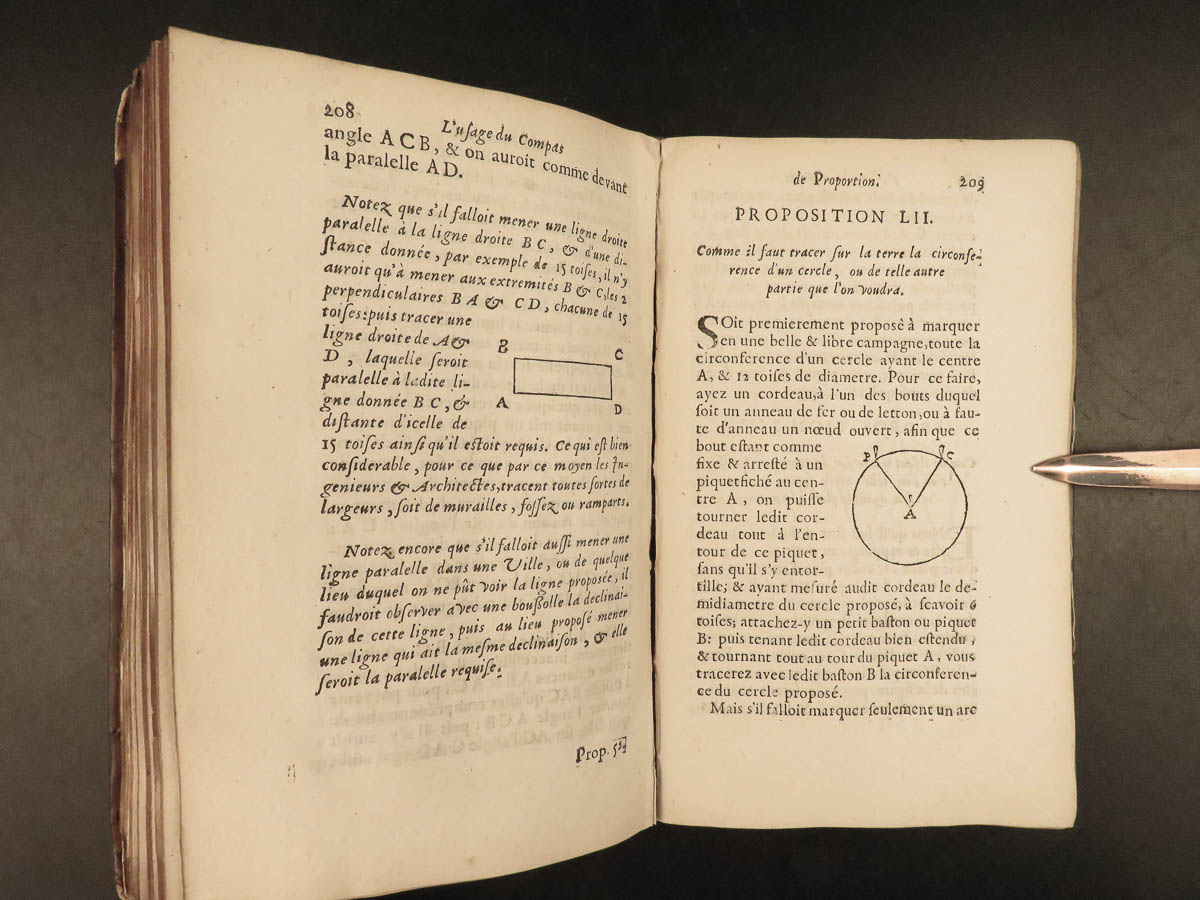 208
L'uſage du Compas
angle ACB, & on auroit comme devant
la paralelle AD.
Notez que s'il falloit mener une ligne droite
paralelle à la ligne droite BC, & d'une di-
ſtance donnée, par exemple de 15 toiſes, il n'y
auroit qu'à mener aux extremités B & C, les 2
perpendiculaires BA & CD, chacune de 15
toiſes: puis tracer une
ligne droite de A &
D, laquelle ſeroit
paralelle à ladite li-
gne donnée BC, &
diſtante d'icelle de
B C
A D
15 toiſes ainſi qu'il eſtoit requis. Ce qui eſt bien
conſiderable, pour ce que par ce moyen les In-
genieurs & Architectes, tracent toutes ſortes de
largeurs, ſoit de murailles, foſſez ou ramparts.
Notez encore que s'il falloit auſſi mener une
ligne paralelle dans une Ville, ou de quelque
lieu duquel on ne pût voir la ligne propoſée, il
faudroit obſerver avec une bouſſolle la declinai-
ſon de cette ligne, puis au lieu propoſé mener
une ligne qui ait la meſme declinaiſon, & elle
ſeroit la paralelle requiſe.
Prop. 52
de Proportion. 209
PROPOSITION LII.
Comme il faut tracer ſur la terre la circonfe-
rence d'un cercle, ou de telle autre
partie que l'on voudra.
SOit premierement propoſé à marquer
en une belle & libre campagne, toute la
circonference d'un cercle ayant le centre
A, & 12 toiſes de diametre. Pour ce faire,
ayez un cordeau, à l'un des bouts duquel
ſoit un anneau de fer ou de letton, ou à fau-
te d'anneau un nœud ouvert, afin que ce
bout eſtant comme
fixe & arreſté à un
piquet fiché au cen-
tre A, on puiſſe
tourner ledit cor-
deau tout à l'en-
tour de ce piquet,
ſans qu'il s'y entor-
B C
A
tille; & ayant meſuré audit cordeau le de-
midiametre du cercle propoſé, à ſcavoir 6
toiſes; attachez-y un petit baſton ou piquet
B: puis tenant ledit cordeau bien eſtendu,
& tournant tout au tour du piquet A, vous
tracerez avec ledit baſton B la circonferen-
ce du cercle propoſé.
Mais s'il falloit marquer ſeulement un arc